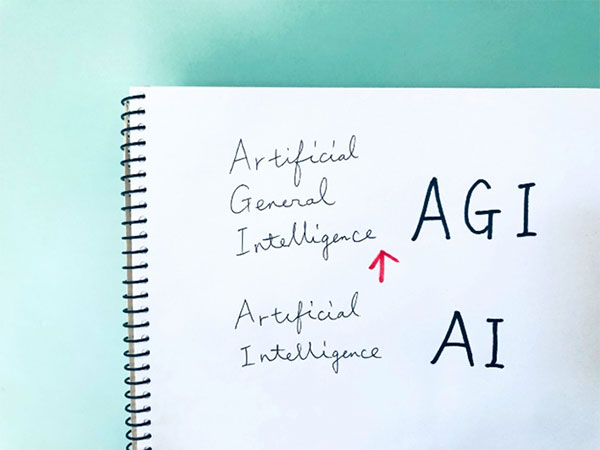 Artificial
General
Intelligence
AGI
Artificial
Intelligence
AI